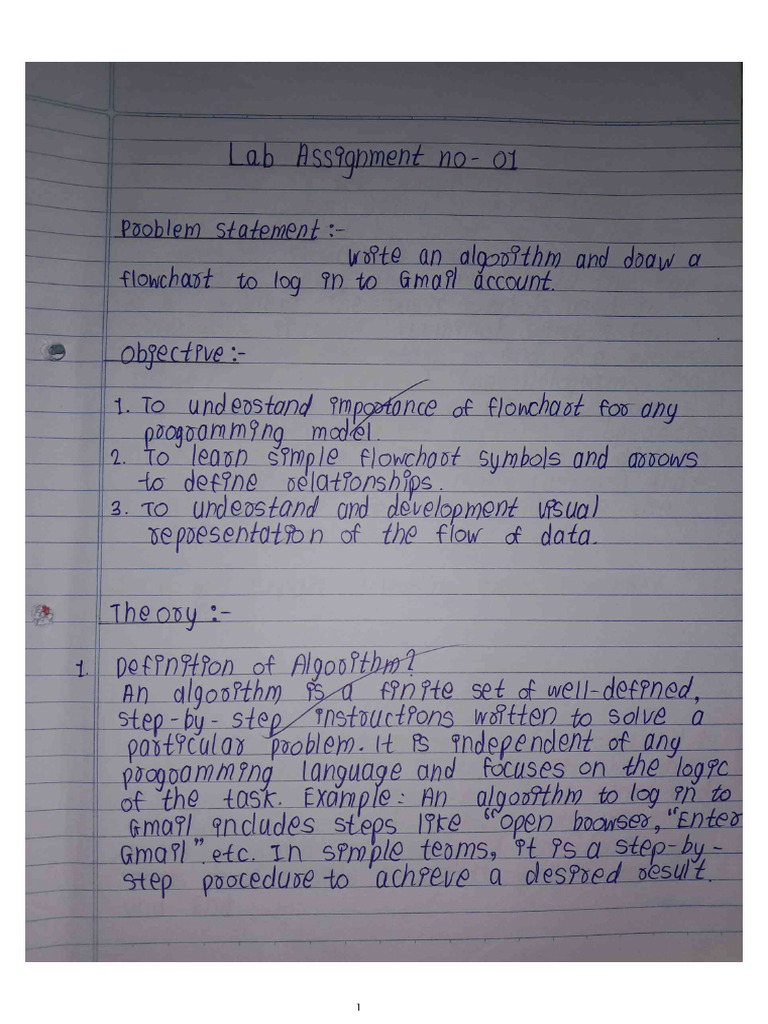 Lab Assignment no- 01
Problem statement :-
write an algorithm and draw a
flowchart to log in to Gmail account.
Objective :-
1. To understand importance of flowchart for any
programming model.
2. To learn simple flowchart symbols and arrows
to define relationships.
3. To understand and development visual
representation of the flow of data.
Theory :-
1. Definition of Algorithm?
An algorithm is a finite set of well-defined,
step-by-step instructions written to solve a
particular problem. It is independent of any
programming language and focuses on the logic
of the task. Example: An algorithm to log in to
Gmail includes steps like "open browser, "Enter
Gmail". etc. In simple terms, it is a step-by-
step procedure to achieve a desired result.
1